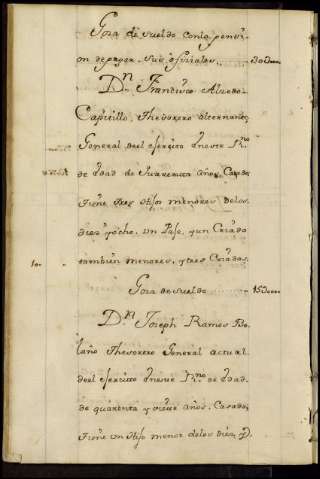 Goza de sueldo con la pensi-
on de pagar sus oficiales 30000
Dn. Francisco Alvaro
Capitillo, Thesorero alternante,
General del exercito de este Rno.
de edad de quarenta años, Casado,
tiene tres hijos menores de los
diez y ocho, un Paje, y un Criado
10 tambien menores, y tres Criadas,
Goza de sueldo 15000
Dn. Joseph Ramos Bo-
laño Thesorero General actual
del exercito de este Rno. de edad
de quarenta y nueve años, Casado,
tiene un hijo menor de los diez, y